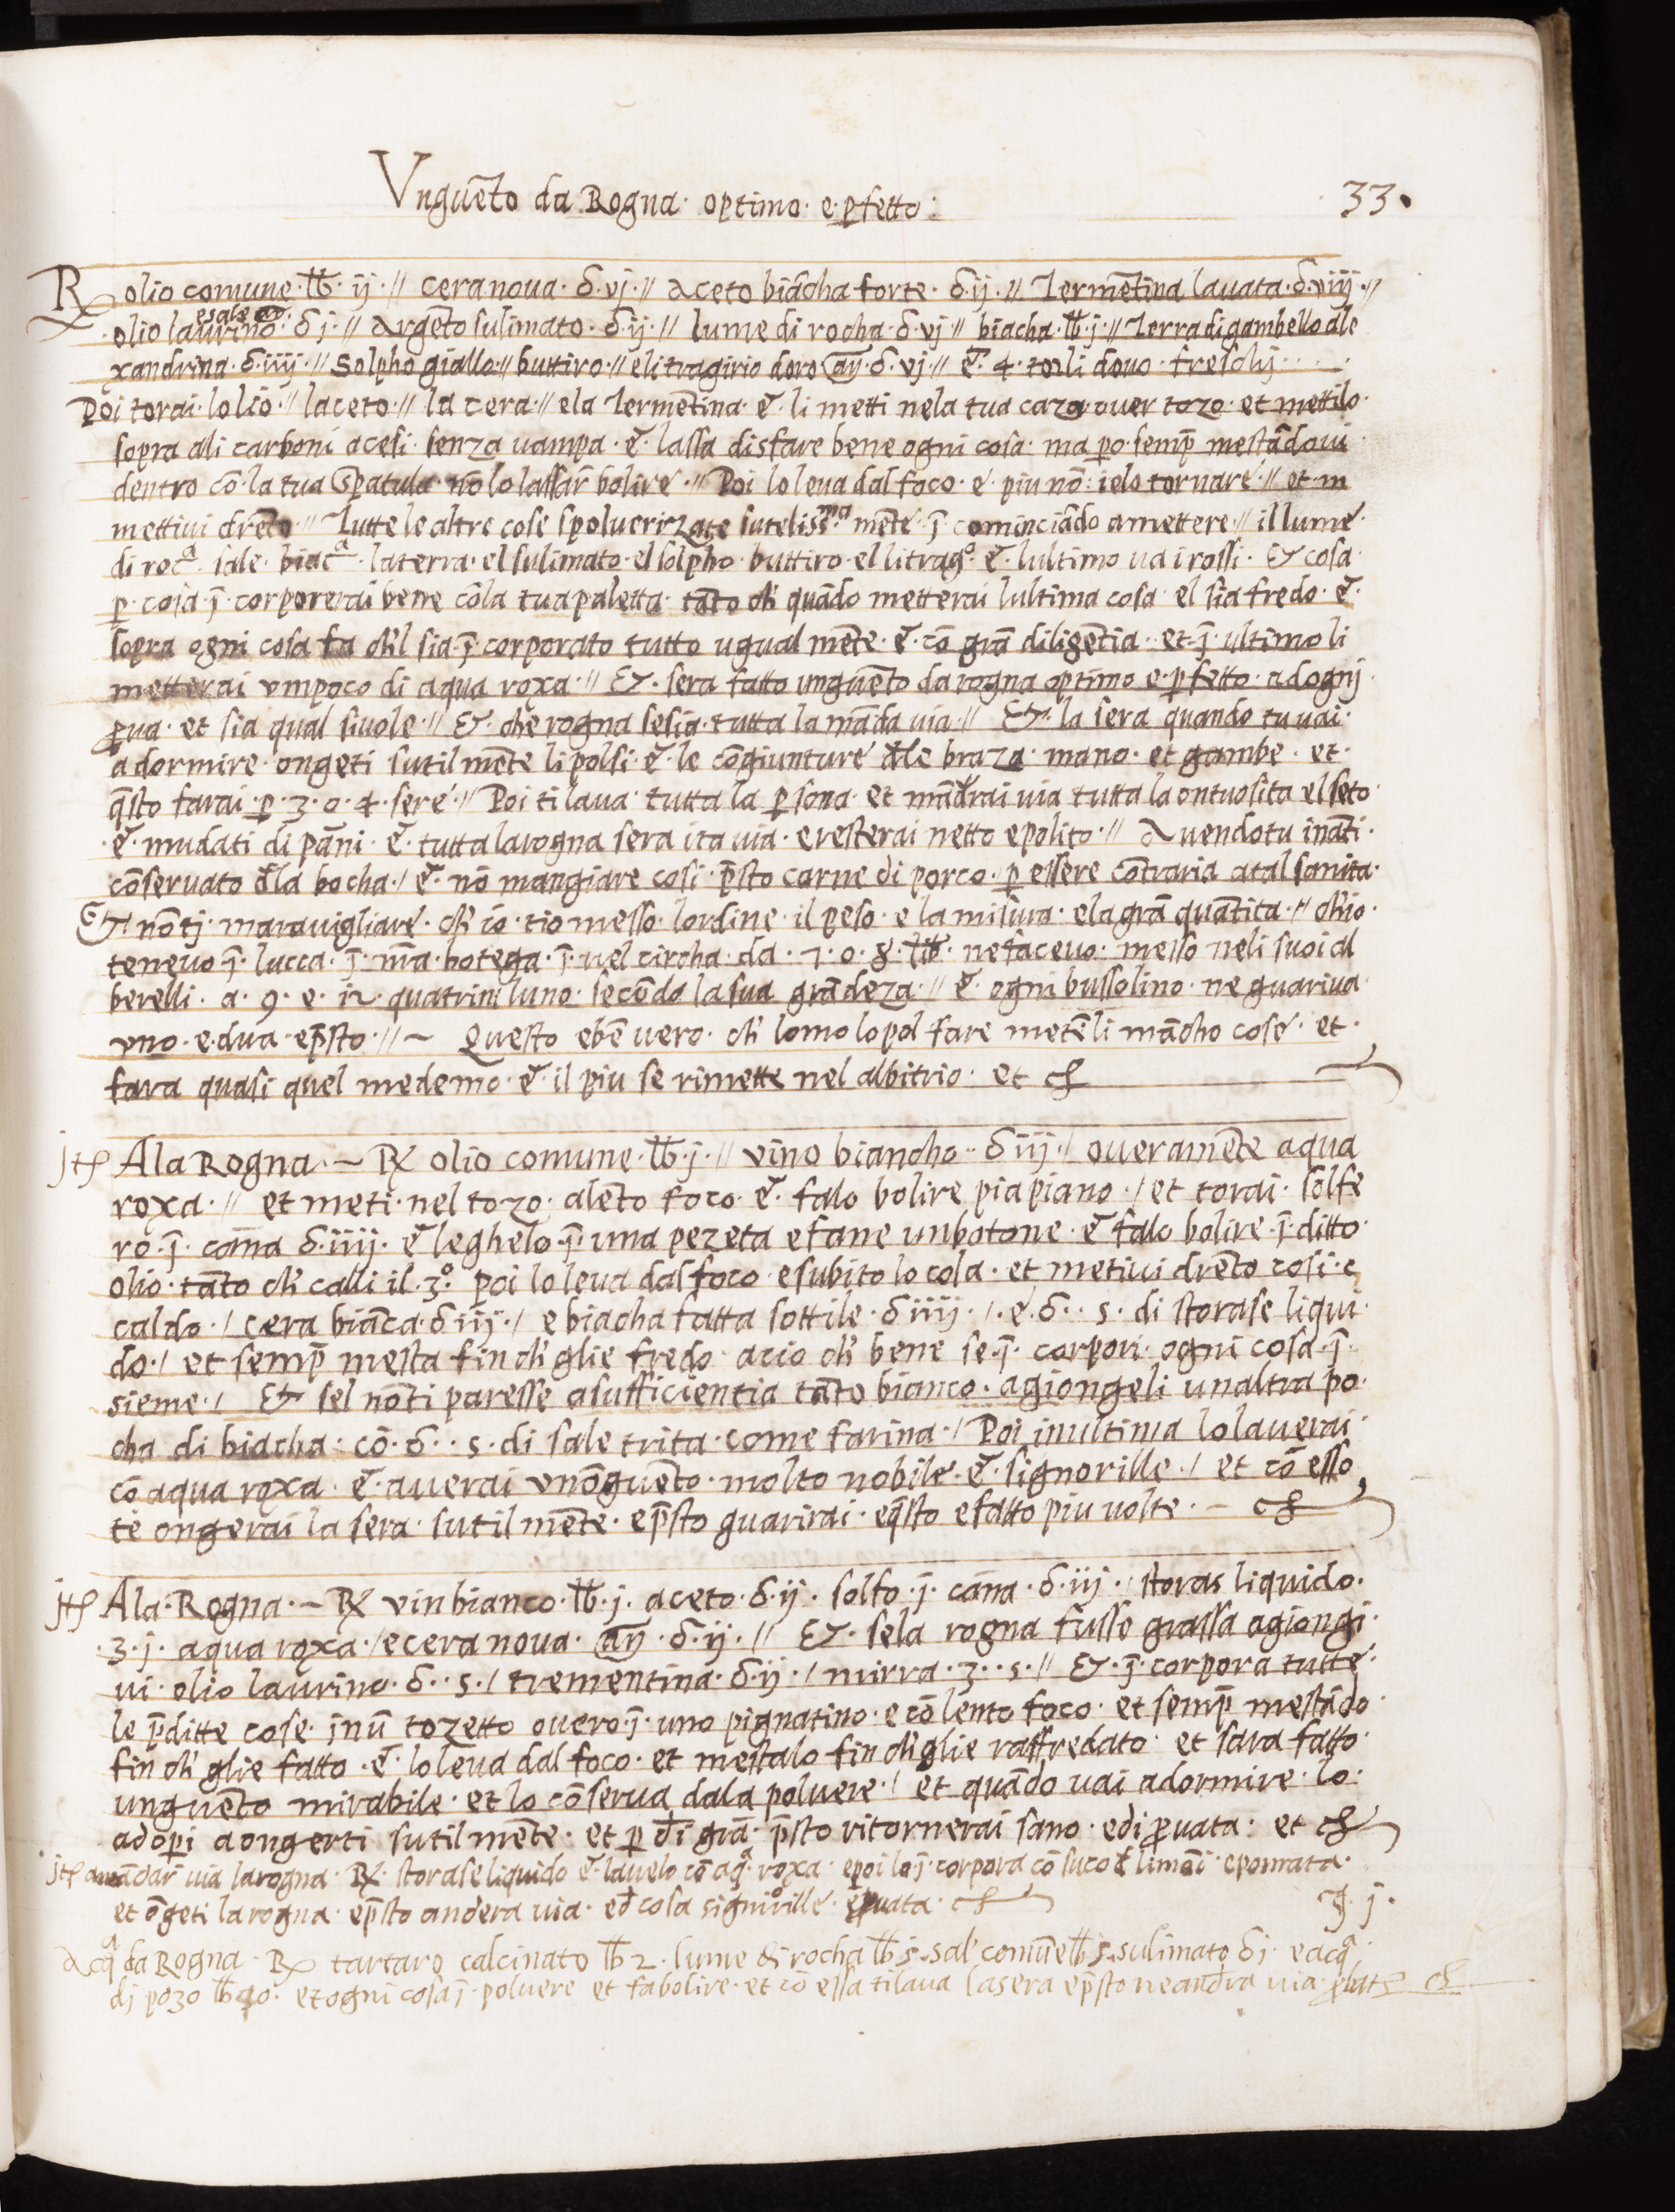 Vnguẽto da Rogna · optimo · e · ꝑfetto :
33 ·
℞ olio comune · ℔ · ij · // cera noua · δ · vj · // aceto biãcho forte · δ · ij · // Termẽtina lauata · δ · viij · //
e sale añ
· olio laurino · δ j · // Argẽto sulimato · δ · ij · // lume di rocha · δ vj // biacha · ℔ · j · // Terra di gambello ale
xandrina · δ · iiij · // Solpho giallo · // buttiro · // e litragirio doro añ · δ · vj · // e͂ · 4 · torli douo · freschj · · · ·
Poi torai · lolio · // laceto · // la cera · // e la Termẽtina · e͂ · li metti nela tua caza ouer tozo · et mettilo ·
sopra ali carboni acesi · senza uampa · e͂ · lassa disfare bene ogni cosa · ma po · semp̃ mestãdoui ·
dentro cõ · la tua spatula · nõ lo lassar̃ bolire · // Poi lo leua dal foco · e · piu nõ · ielo tornare · // et m
mettiui drẽto · // Tutte le altre cose spoluerizate sutelissᵐᵃ · mẽte · j̃ · cominciãdo a mettere · // il lume ·
di rocᵃ · sale · biacᵃ · la terra · el sulimato · el solpho · buttiro · el litragᵒ · e͂ · lultimo ua i rossi · Et cosa ·
ꝑ · cosa · j̃ · corporerai bene cõ la tua paletta · tãto ch̃ quãdo metterai lultima cosa · el sia fredo · e͂ ·
sopra ogni cosa fa ch̃l sia · j̃ · corporato tutto ugual mẽte · e͂ · cõ grã diligẽtia · et · j̃ · ultimo li
metterai vmpoco di aqua roxa · // Et · sera fatto unguẽto da rogna optimo e · ꝑfetto · ad ognj ·
ꝓua · et sia qual si uole · // Et · che rogna se sia · tutta la mãda uia · // Et · la sera quando tu uai ·
a dormire · ongeti sutil mẽte li polsi · e͂ · le cõgiunture d̃le braza · mano · et gambe · et ·
q̃sto farai · ꝑ · 3 · o · 4 · sere · // Poi ti laua · tutta la ꝑsona · et mãdrai uia tutta la ontuosita el seto ·
· e͂ · mudati di pãni · e͂ · tutta la rogna sera ita uia · e resterai netto e polito · // Auendo tu inãti ·
cõseruato d̃la bocha · / e͂ · nõ mangiare cosi · p̃sto carne di porco · ꝑ essere cõtraria a tal sanita ·
Et · nõ tj · marauigliare · ch̃ io · tio messo · lordine · il peso · e la misura · e la grã quãtita · // ch̃io ·
teneuo · j̃ · lucca · j̃ · m̃a · botega · j̃ · uel circha · da · 7 · o · 8 · ℔ · ne faceuo · messo neli suoi al
berelli · a · 9 · e · 12 · quatrini luno · secõdo la sua grãdeza · // e͂ · ogni bussolino · ne guariua ·
vno · e · dua · e p̃sto · // ~ Questo e bẽ uero · ch̃ lomo lo pol fare metẽli mãcho cose · et ·
fara quasi quel medemo · e͂ · il piu se rimette nel albitrio · et cß
jtß Ala Rogna · ~ ℞ olio comune · ℔ · j · // vino biancho · δ iij · / oueramẽte aqua
roxa · // et meti · nel tozo · alẽto foco · e͂ · falo bolire pia piano · / et torai · solfe
ro · j̃ · cãna δ · iiij · e͂ leghelo · j̃ · una pezeta e fane un botone · e͂ falo bolire · j̃ · ditto ·
olio · tãto ch̃ calli il · 3º · poi lo leua dal foco e subito lo cola · et metiui drẽto cosi · c
caldo · / cera biãca · δ iij · / e biacha fatta sottile · δ iiij · / · e · δ · · s · di storase liqui ·
do · / et semp̃ mesta fin ch̃ glie fredo · acio ch̃ bene se · j̃ · corpori · ogni cosa · j̃ ·
sieme · / Et sel nõ ti paresse a sufficientia tãto bianco · agiongeli unaltra po ·
cha di biacha · cõ · δ · · s · di sale trita · come farina · / Poi in ultima lo lauerai ·
cõ aqua roxa · e͂ · auerai vnõguẽto · molto nobile · e͂ · signorille · / et cõ esso
te ongerai la sera · sutil mẽte · e p̃sto guarirai · e q̃sto e fatto piu uolte · – cß
jtß Ala · Rogna · ~ ℞ vin bianco · ℔ · j · aceto · δ · ij · solfo · j̃ · cãna · δ · iij · / storas liquido ·
· 3 · j · aqua roxa · / e cera noua · añ · δ · ij · // Et · se la rogna fusse grassa agiongi ·
ui · olio laurino · δ · · s · / trementina · δ · ij · / mirra · 3 · · s · // Et · j̃ · corpora tutte ·
le p̃ditte cose · j̃nũ tozetto ouero · j̃ · uno pignatino · e cõ lento foco · et semp̃ mestãdo ·
fin ch̃ glie fatto · e͂ · lo leua dal foco · et mestalo fin ch̃ glie raffredato · et sara fatto ·
unguẽto mirabile · et lo cõserua dala poluere · / et quãdo uai a dormire · lo ·
adop̃i a ongerti sutil mẽte · et ꝑ d̃i grã · p̃sto ritornerai sano · e di ꝓuata · et cß
jtß a mãdar̃ uia la rogna · ℞ · storase liquido e͂ · lauelo cõ aqᵃ · roxa · e poi lo · j̃ · corpora cõ suco d̃ limõi · e pomata ·
et õgeti la rogna · e p̃sto andera uia · ed̃ cosa signiorille · e ꝓuata · cß
3 · j ·
Acqᵃ da Rogna · ℞ tartaro calcinato ℔ 2 · lume di rocha ℔ s · sal comũe ℔ s · sulimato δ j · e acqᵃ ·
dj pozo ℔ 40 · et ogni cosa j̃ · poluere et fa bolire · et cõ essa ti laua la sera e p̃sto ne andra uia · ꝓbatß cß